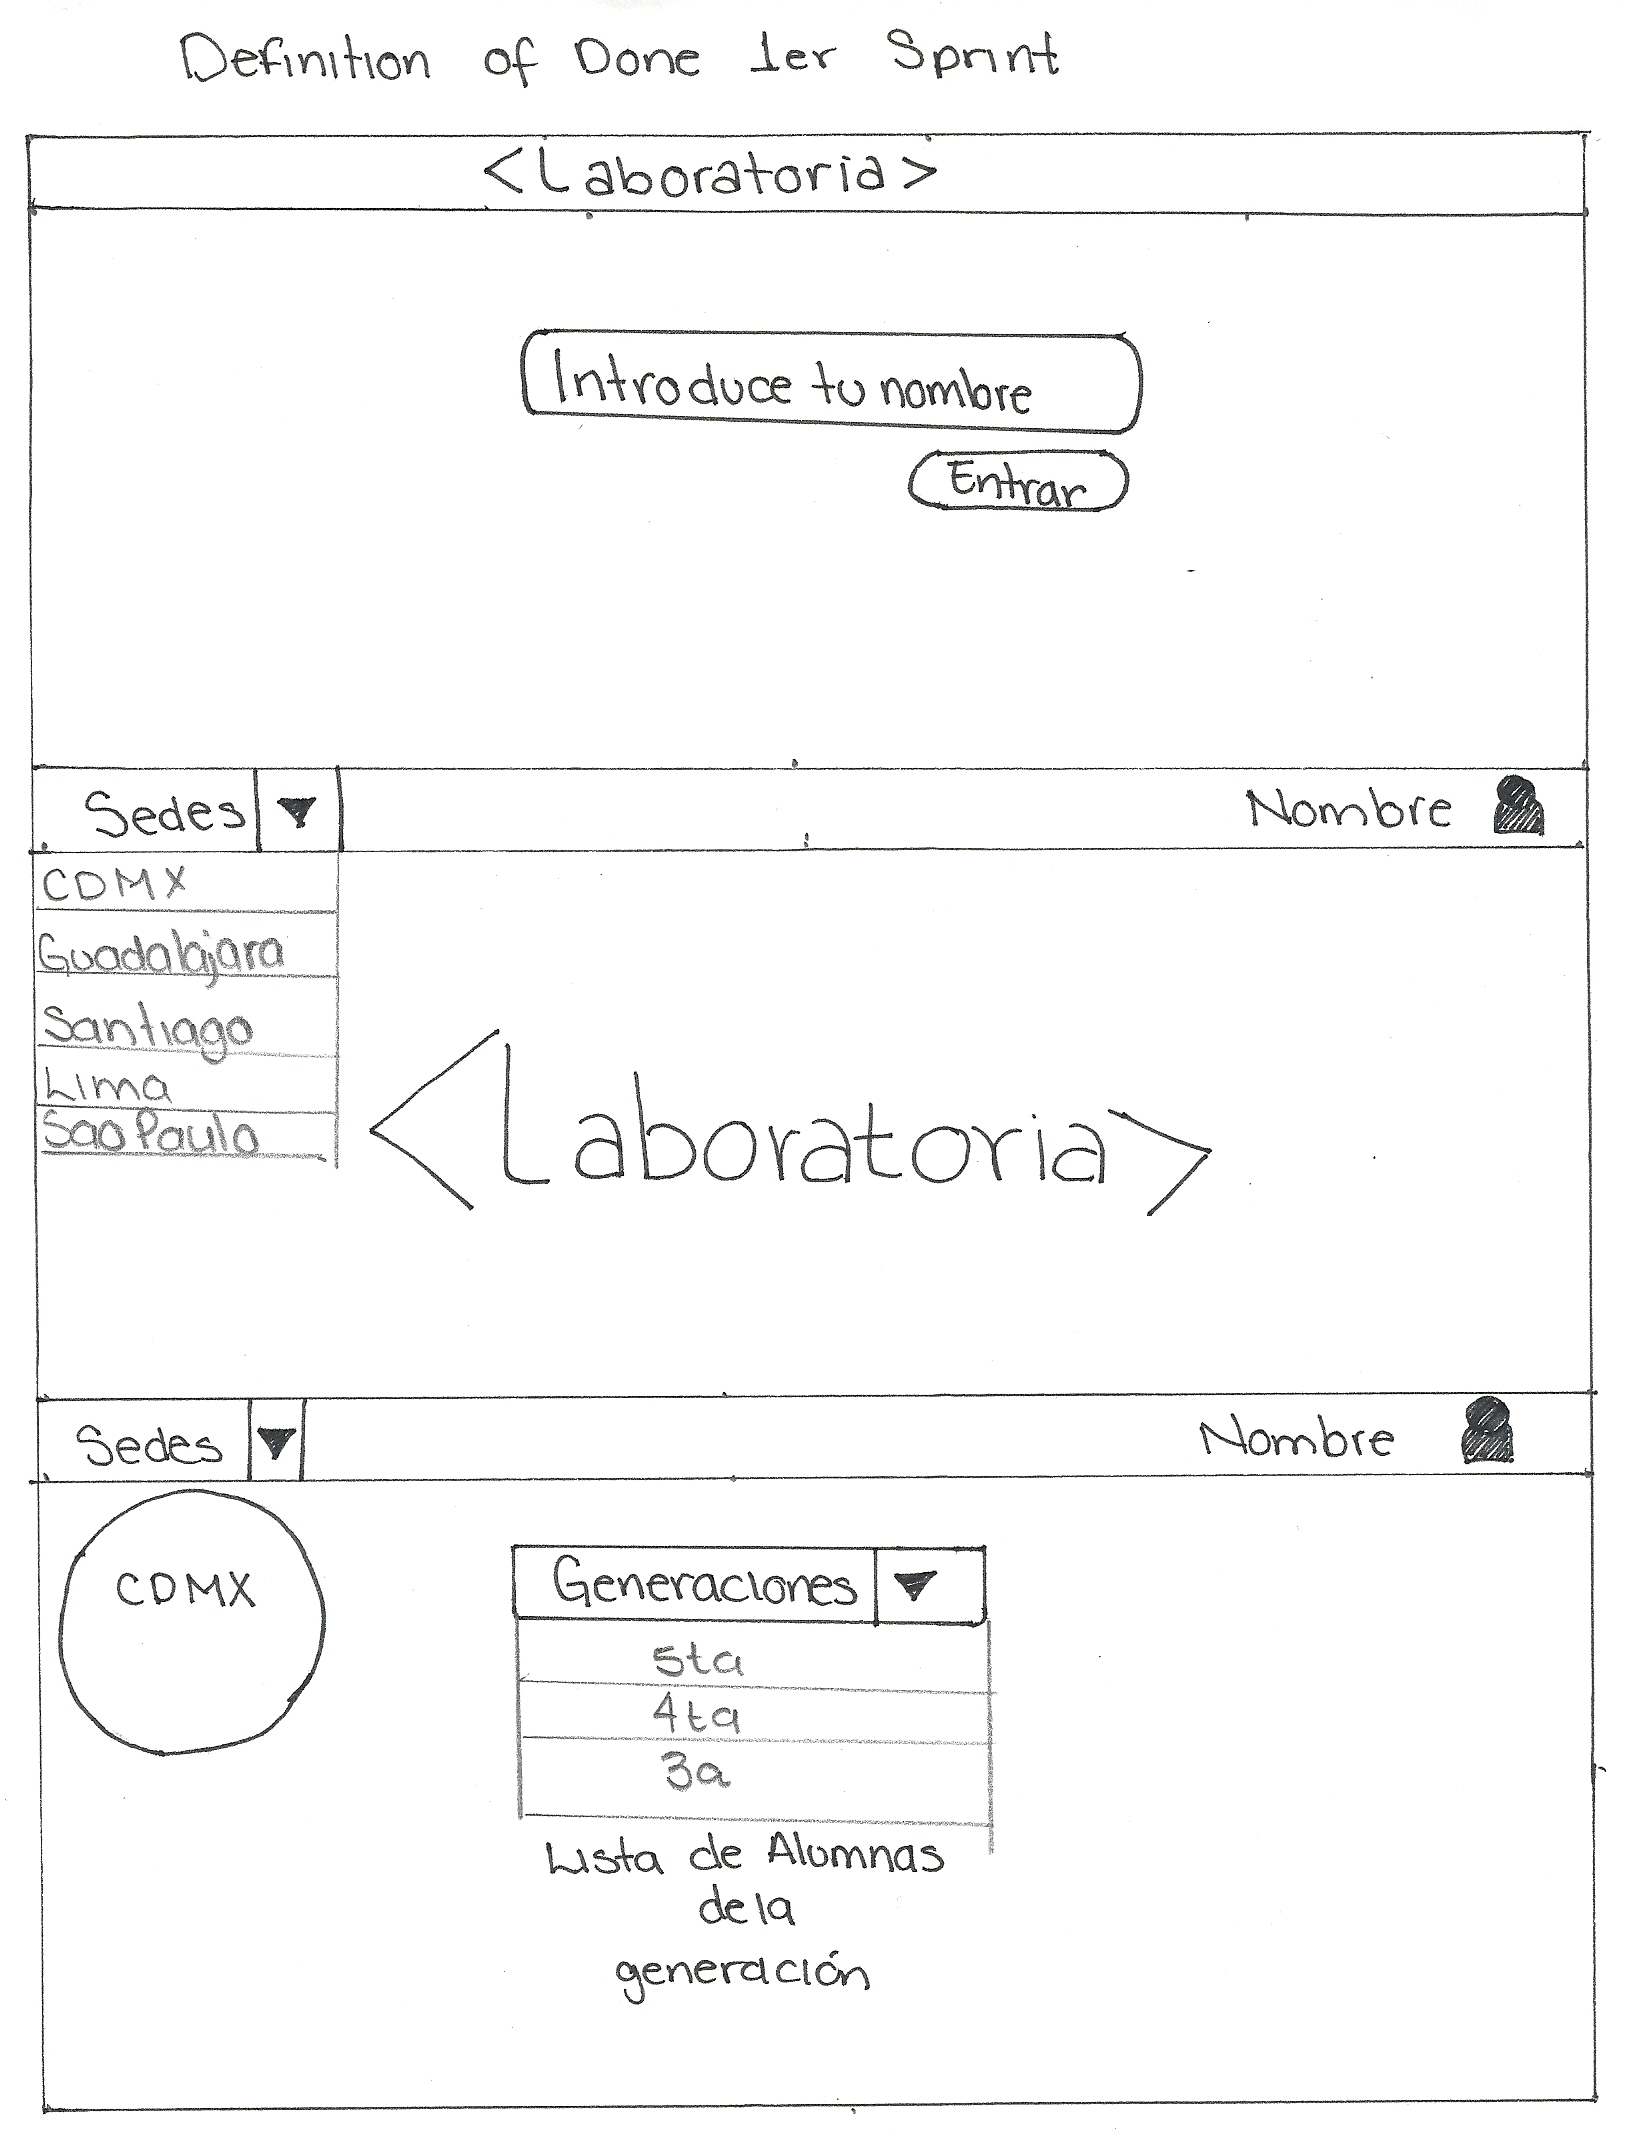 Definition of Done 1er Sprint
<Laboratoria>
Introduce tu nombre
Entrar
Sedes
Nombre
CDMX
Guadalajara
Santiago
Lima
Sao Paulo
<Laboratoria>
Sedes
Nombre
CDMX
Generaciones
5ta
4ta
3a
Lista de Alumnas
de la
generación